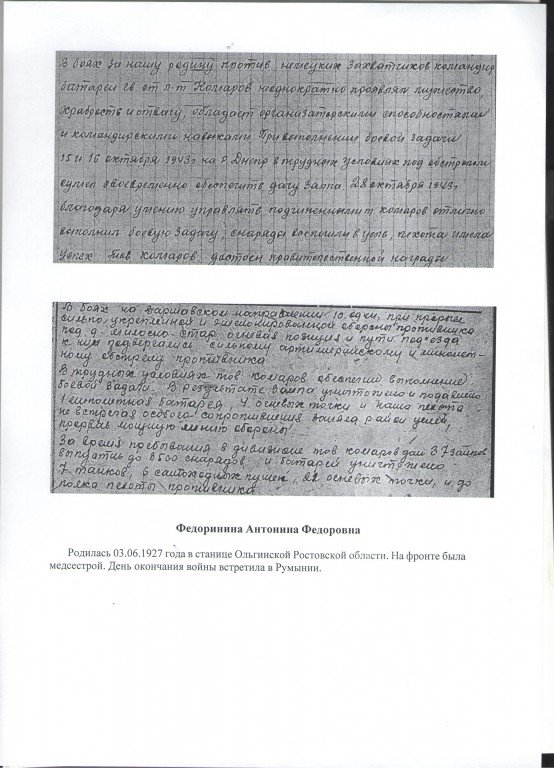 В боях за нашу родину против немецких захватчиков командир
батареи гв. ст л-т Комаров неоднократно проявлял мужество,
храбрость и отвагу, обладает организаторскими способностями
и командирскими навыками. При выполнении боевой задачи
15 и 16 октября 1943г на р. Днепр в трудных условиях под обстрелом
сумел своевременно обеспечить дачу залпа 28 октября 1943г
благодаря умению управлять подчиненными т Комаров отлично
выполнил боевую задачу, снаряды в цель, пехота имела
успех Тов Комаров достоин правительственной награды
В боях на варшавском направлении 10. при прорыве
сильно укрепленной и обороны противника
под д. стар. огневая позиция и пути подъезда
к ним подвергались сильному артиллерийскому и миномет-
ному обстрелу противника
В трудных условиях тов Комаров обеспечил выполнение
боевой задачи. В результате залпа уничтожено и подавлено
1 батарея, 4 огневых точки и наша пехота
не встречая особого сопротивления заняла район целей,
прорвав мощную линию обороны!
За время пребывания в дивизионе тов Комаров дал 37 залпов
выпустив до 3500 снарядов и батареей уничтожено
7 танков, 6 самоходных пушек, 22 огневых точки, и до
полка пехоты противника
Федоринина Антонина Федоровна
Родилась 03.06.1927 года в станице Ольгинской Ростовской области. На фронте была
медсестрой. День окончания войны встретила в Румынии.